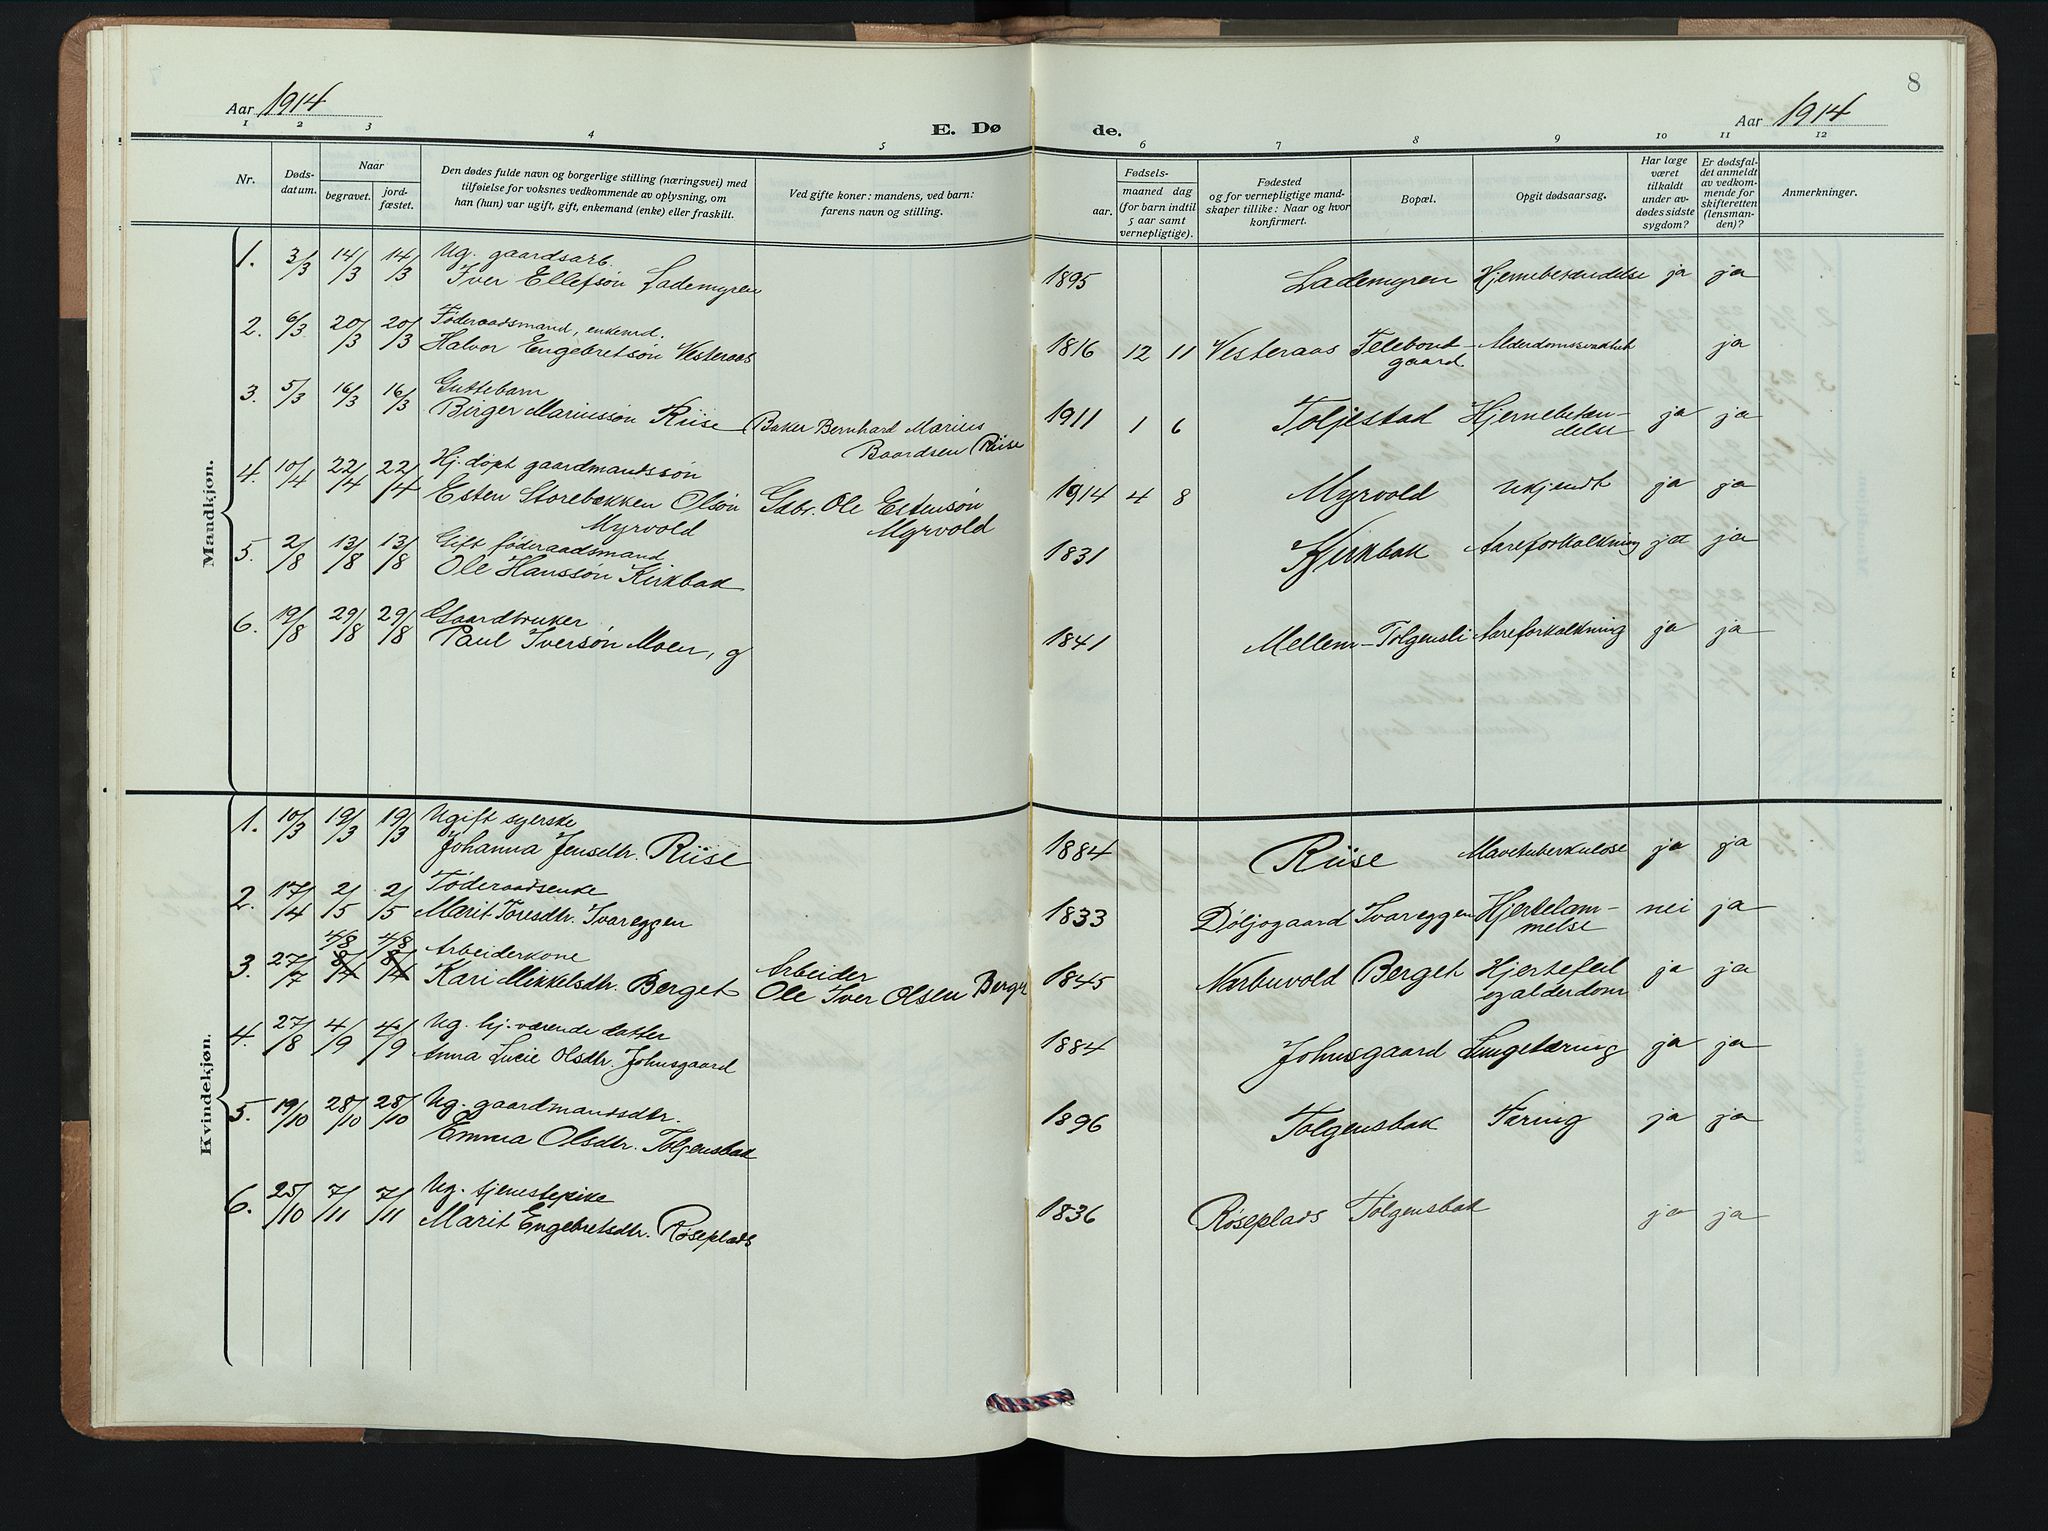 8
Aar 1914
E. Døde.
Aar 1914
1 2 3 4 5 6 7 8 9 10 11 12
Nr.
Døds-datum.
Naar
begravet.
jord-fæstet.
Den dødes fulde navn og borgerlige stilling (næringsvei) med
tilføielse for voksnes vedkommende av oplysning, om
han (hun) var ugift, gift, enkemand (enke) eller fraskilt.
Ved gifte koner: mandens, ved barn:
farens navn og stilling.
Fødsels-
aar.
maaned dag
(for barn indtil
5 aar samt
vernepligtige).
Fødested
og for vernepligtige mand-
skaper tillike: Naar og hvor
konfirmert.
Bopæl.
Opgit dødsaarsag.
Har læge
været
tilkaldt
under av-
dødes sidste
sygdom?
Er dødsfal-
det anmeldt
av vedkom-
mende for
skifteretten
(lensman-
den)?
Anmerkninger.
Mandkjøn.
1. 3/3 14/3 14/3 Ug. gaardsarb.
Iver Ellefsøn Lademyren 1895 Lademyren Hjernebetændelse ja ja
2. 6/3 20/3 20/3 Føderaadsmand, enkemd.
Halvor Engebretsøn Vesteraas 1816 12 11 Vesteraas Tellebond- Alderdomssvakhet ja
gaard
3. 5/3 16/3 16/3 Guttebarn
Birger Mariussøn Riise Baker Bernhard Marius 1911 1 6 Toljestad Hjernebetæn- ja ja
Baardsen Riise delse
4. 10/4 22/4 22/4 Hj. døpt gaardmandssøn
Esten Storebækken Olsøn Gdbr. Ole Estensøn 1914 4 8 Myrvold Ukjendt ja ja
Myrvold Myrvold
5. 2/8 13/8 13/8 Gift føderaadsmand
Ole Hanssøn Kirkbak 1831 Kirkbak Aareforkalkning ja ja
6. 19/8 29/8 29/8 Gaardbruker
Paul Iversøn Moen, g 1841 Mellem-Tolgensli Aareforkalkning ja ja
Kvindekjøn.
1. 10/3 19/3 19/3 Ugift syerske
Johanna Jensdtr. Riise 1884 Riise Mavetuberkulose ja ja
2. 17/14 2/5 2/5 Føderaadsenke
Marit Toresdtr. Svareggen 1833 Døljogaard Svareggen Hjertelam- nei ja
melse
4/8 4/8
3. 27/7 8/14 8/14 Arbeiderkone Arbeider
Kari Mikkelsdtr. Berget Ole Iver Olsen Berget 1845 Narbuvold Berget Hjertefeil ja ja
og alderdom
4. 27/8 4/9 4/9 Ug. hj. værende datter
Anna Lucie Olsdtr. Johnsgaard 1884 Johnsgaard Lungetæring ja ja
5. 19/10 28/10 28/10 Ug. gaardmandsdtr.
Emma Olsdtr. Tolgensbak 1896 Tolgensbak Tæring ja ja
6. 25/10 7/11 7/11 Ug. tjenestepike
Marit Engebretsdtr. Røseplads 1836 Røseplads Tolgensbak ja ja